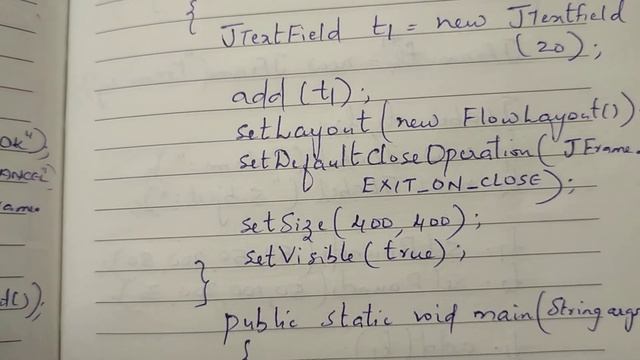 {
JTextField t1 = new JTextfield
(20);
add (t1);
setLayout (new FlowLayout()
setDefaultCloseOperation( JFrame.
EXIT_ON_CLOSE);
setSize(400, 400);
setVisible(true);
}
public static void main(String args
{
OK");
ANCEL"
ame.
d();